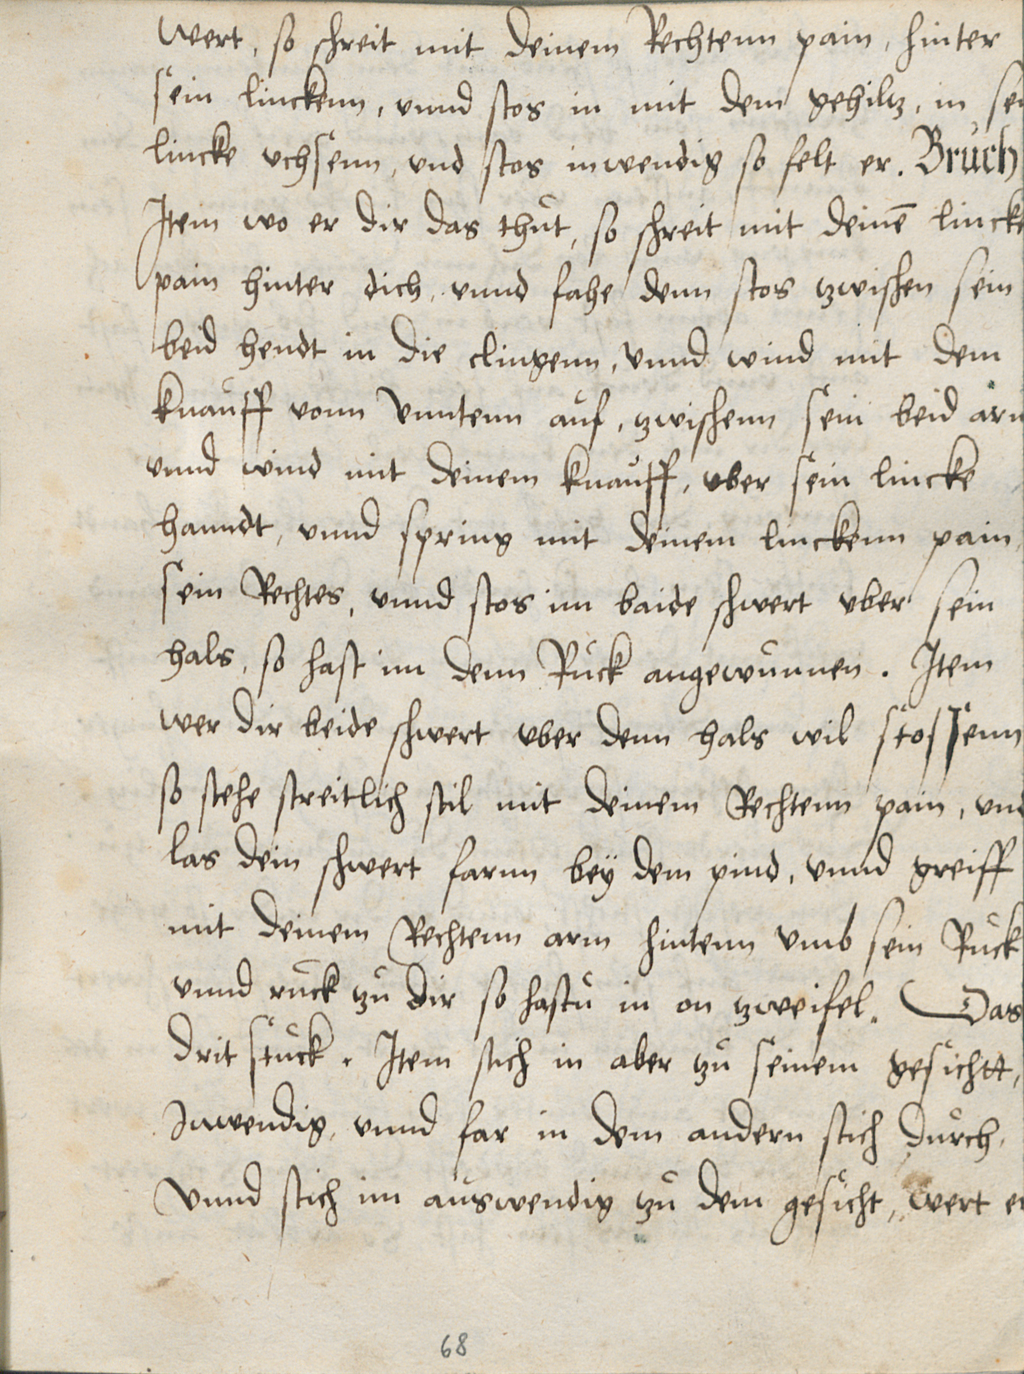 wert, so schreit mit deinem Rechtenn pain, hinter
sein linckenn, vnnd stos in mit dem gehiltz, in sei
lincke vchsenn, vnd stos inwendig so felt er. Bruch
Item wo er dir das thut, so schreit mit deinē lincke
pain hinter dich, vnnd fahe denn stos tzwischen sein
beid hendt in die clingenn, Vnnd wind mit dem
knauff vonn Vnntenn auf, tzwischenn sein beid arm
vnnd wind mit deinem knauff, vber sein lincke
hanndt, vnnd spring mit deinem linckenn pain,
sein Rechtes, vnnd stos im baide schwert vber sein
hals, so hast im denn Ruck angewunnen. Item
wer dir beide schwert vber denn hals wil stossenn
so stehe streitlich stil mit deinem Rechtenn pain, vnd
las dein schwert farnn bey dem pind, vnnd greiff
mit deinem Rechtenn arm hintenn vmb sein Ruck
vnnd ruck tzu dir so hastu in on tzweifel. Das
drit stuck. Item stich in aber tzu seinem gesichtt,
Inwendig, vnnd far in dem andern stich durch,
Vnnd stich im auswendig tzu dem gesicht, wert er
68